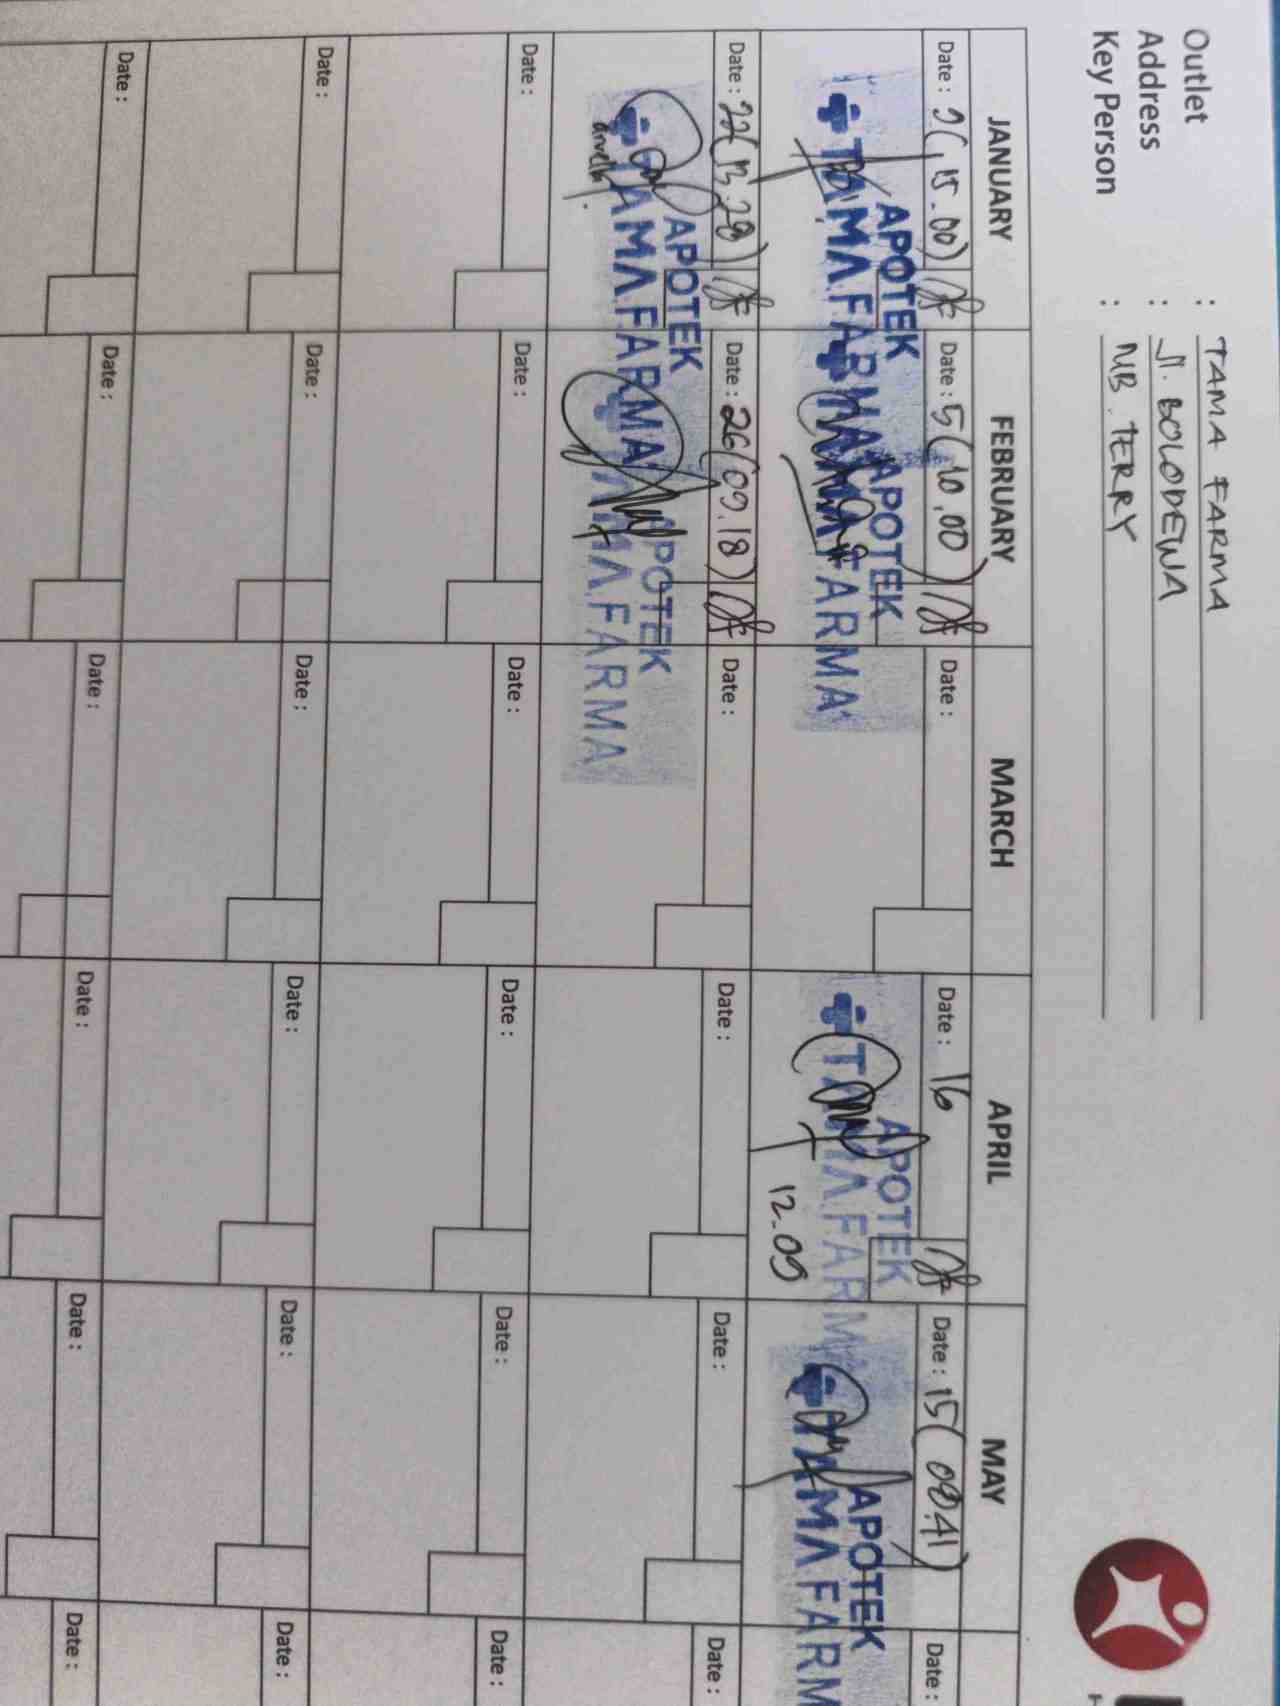 Outlet : TAMA FARMA
Address : Jl. BOLODEWA
Key Person : MB. TERRY
JANUARY FEBRUARY MARCH APRIL MAY
Date : 2(15.00) Date : 5(10.00) Date : Date : 16 Date : 15(08.41) Date :
APOTEK APOTEK APOTEK APOTEK
TAMA FARMA TAMA FARMA TAMA FARMA TAMA FARM
12.09
Date : 22(13.28) Date : 26(09.18) Date : Date : Date : Date :
APOTEK APOTEK
TAMA FARMA TAMA FARMA
Date : Date : Date : Date : Date : Date :
Date : Date : Date : Date : Date : Date :
Date : Date : Date : Date : Date : Date :